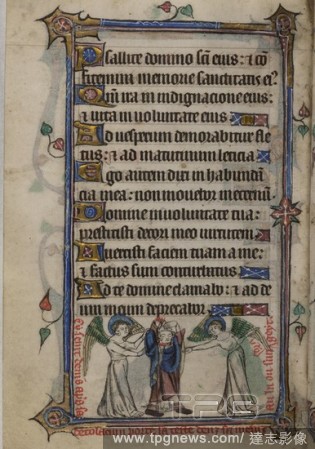 Psallite domino sc̄i eius: & cō
fitemini memorie sanctitatis ei⁹
Qm̄ ira in indignacione eius:
& uita in uoluntate eius
Ad uesperum demorabitur fle
tus: & ad matutinum leticia
Ego autem dixi in habundā
cia mea: non mouebor in eternū
Domine in uoluntate tua:
prestitisti decori meo uirtutem
Auertisti faciem tuam a me:
& factus sum conturbatus
Ad te domine clamabo: & ad de
um meum deprecabor
TPG
www.tpgnews.com / 達志影像